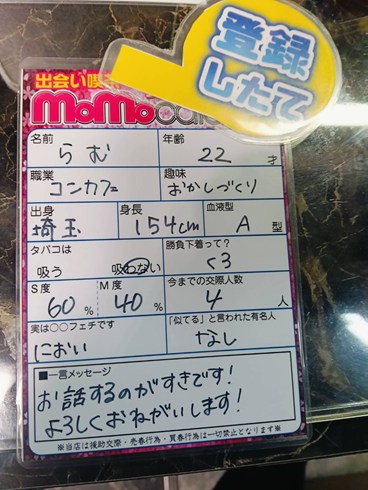 登録
したて
出会い喫
MoMoca
名前 らむ 年齢 22才
職業 コンカフェ 趣味 おかしづくり
出身 埼玉 身長 154cm 血液型 A型
タバコは 吸う 吸わない 勝負下着って? くろ
S度 60% M度 40% 今までの交際人数 4人
実は○○フェチです におい 「似てる」と言われた有名人 なし
■一言メッセージ
お話するのがすきです!
よろしくおねがいします!
※当店は援助交際・売春行為・買春行為は一切禁止となります※